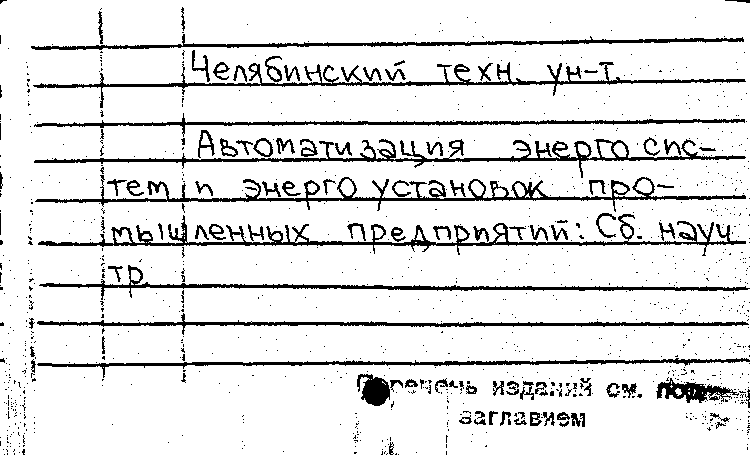 Челябинский техн. ун-т.
Автоматизация энергосис-
тем и энергоустановок про-
мышленных предприятий: Сб. науч
тр.
Перечень изданий см. под
заглавием